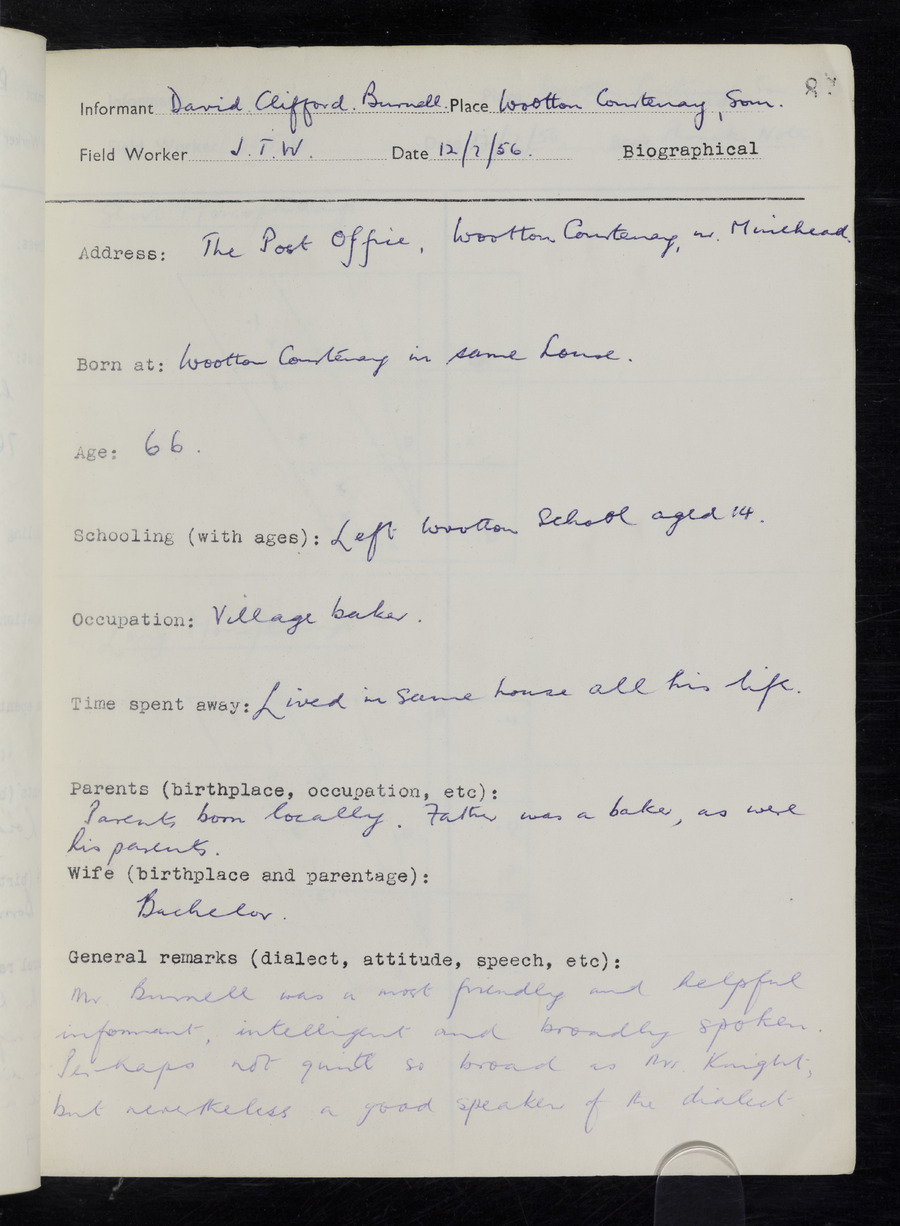 Informant David Clifford Burnell Place Wootton Courtenay, Som.
Field Worker J.T.W. Date 12/7/56. Biographical
Address: The Post Office, Wootton Courtenay, nr. Minehead.
Born at: Wootton Courtenay in same house.
Age: 66.
Schooling (with ages): Left Wootton School aged 14.
Occupation: Village baker.
Time spent away: Lived in same house all his life.
Parents (birthplace, occupation, etc):
Parents born locally. Father was a baker, as were
his parents.
Wife (birthplace and parentage):
Bachelor.
General remarks (dialect, attitude, speech, etc):
Mr. Burnell was a most friendly and helpful
informant, intelligent and broadly spoken.
Perhaps not quite so broad as Mr. Knight,
but nevertheless a good speaker of the dialect.